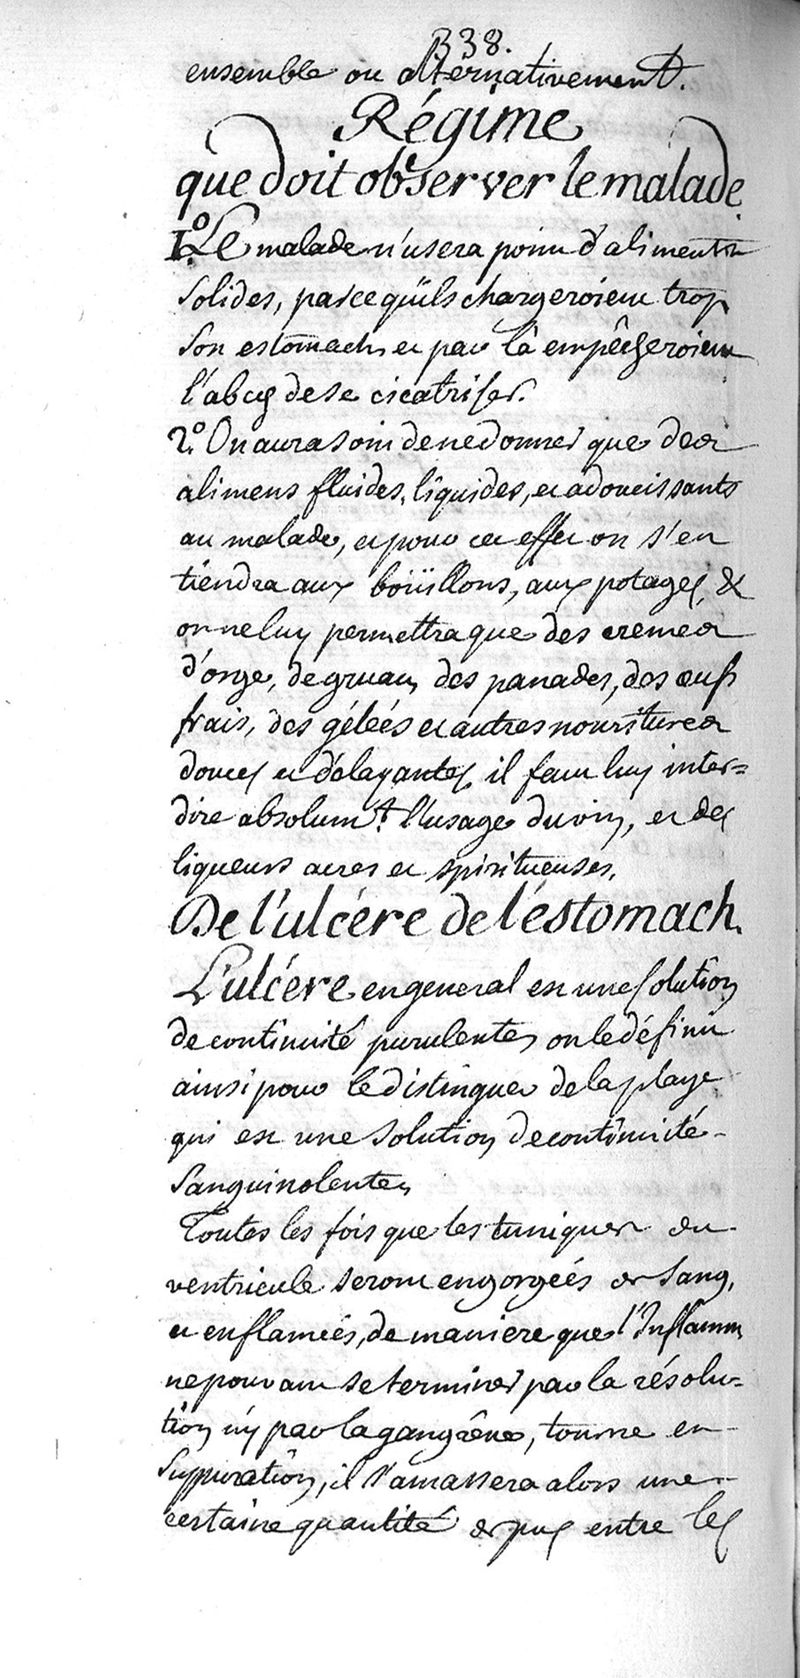 338.
ensemble ou alternativement.
Régime
que doit observer le malade
1.º Le malade n'usera point d'alimentts
solides, parce quïls chargeroient trop
son estomach, et par là empêcheroient
l'abcès de se cicatriser.
2.º On aura soin de ne donner que des
alimens fluides, liquides, et adoucissants
au malade, et pour cet effet on s'en
tiendra aux boüillons, aux potages, &
on ne luy permettra que des cremes
d'orge, de gruau, des panades, des œufs
frais, des gélées et autres nourritures
douces et délayantes, il faut luy inter=
dire absolumt. l'usage du vin, et des
liqueurs acres et spiritueuses.
De l'ulcére de l'éstomach.
L'ulcére en general est une solution
de continuité purulente, on le définit
ainsi pour le distinguer de la playe
qui est une solution de continuité
sanguinolente,
Toutes les fois que les tuniques du
ventricule seront engorgeés de sang,
et enflameés, de maniere que l'Inflamm
ne pouvant se terminer par la résolu-
tion ny par la gangrêne, tourne en
suppuration, il s'amassera alors une
certaine quantité de pus entre les